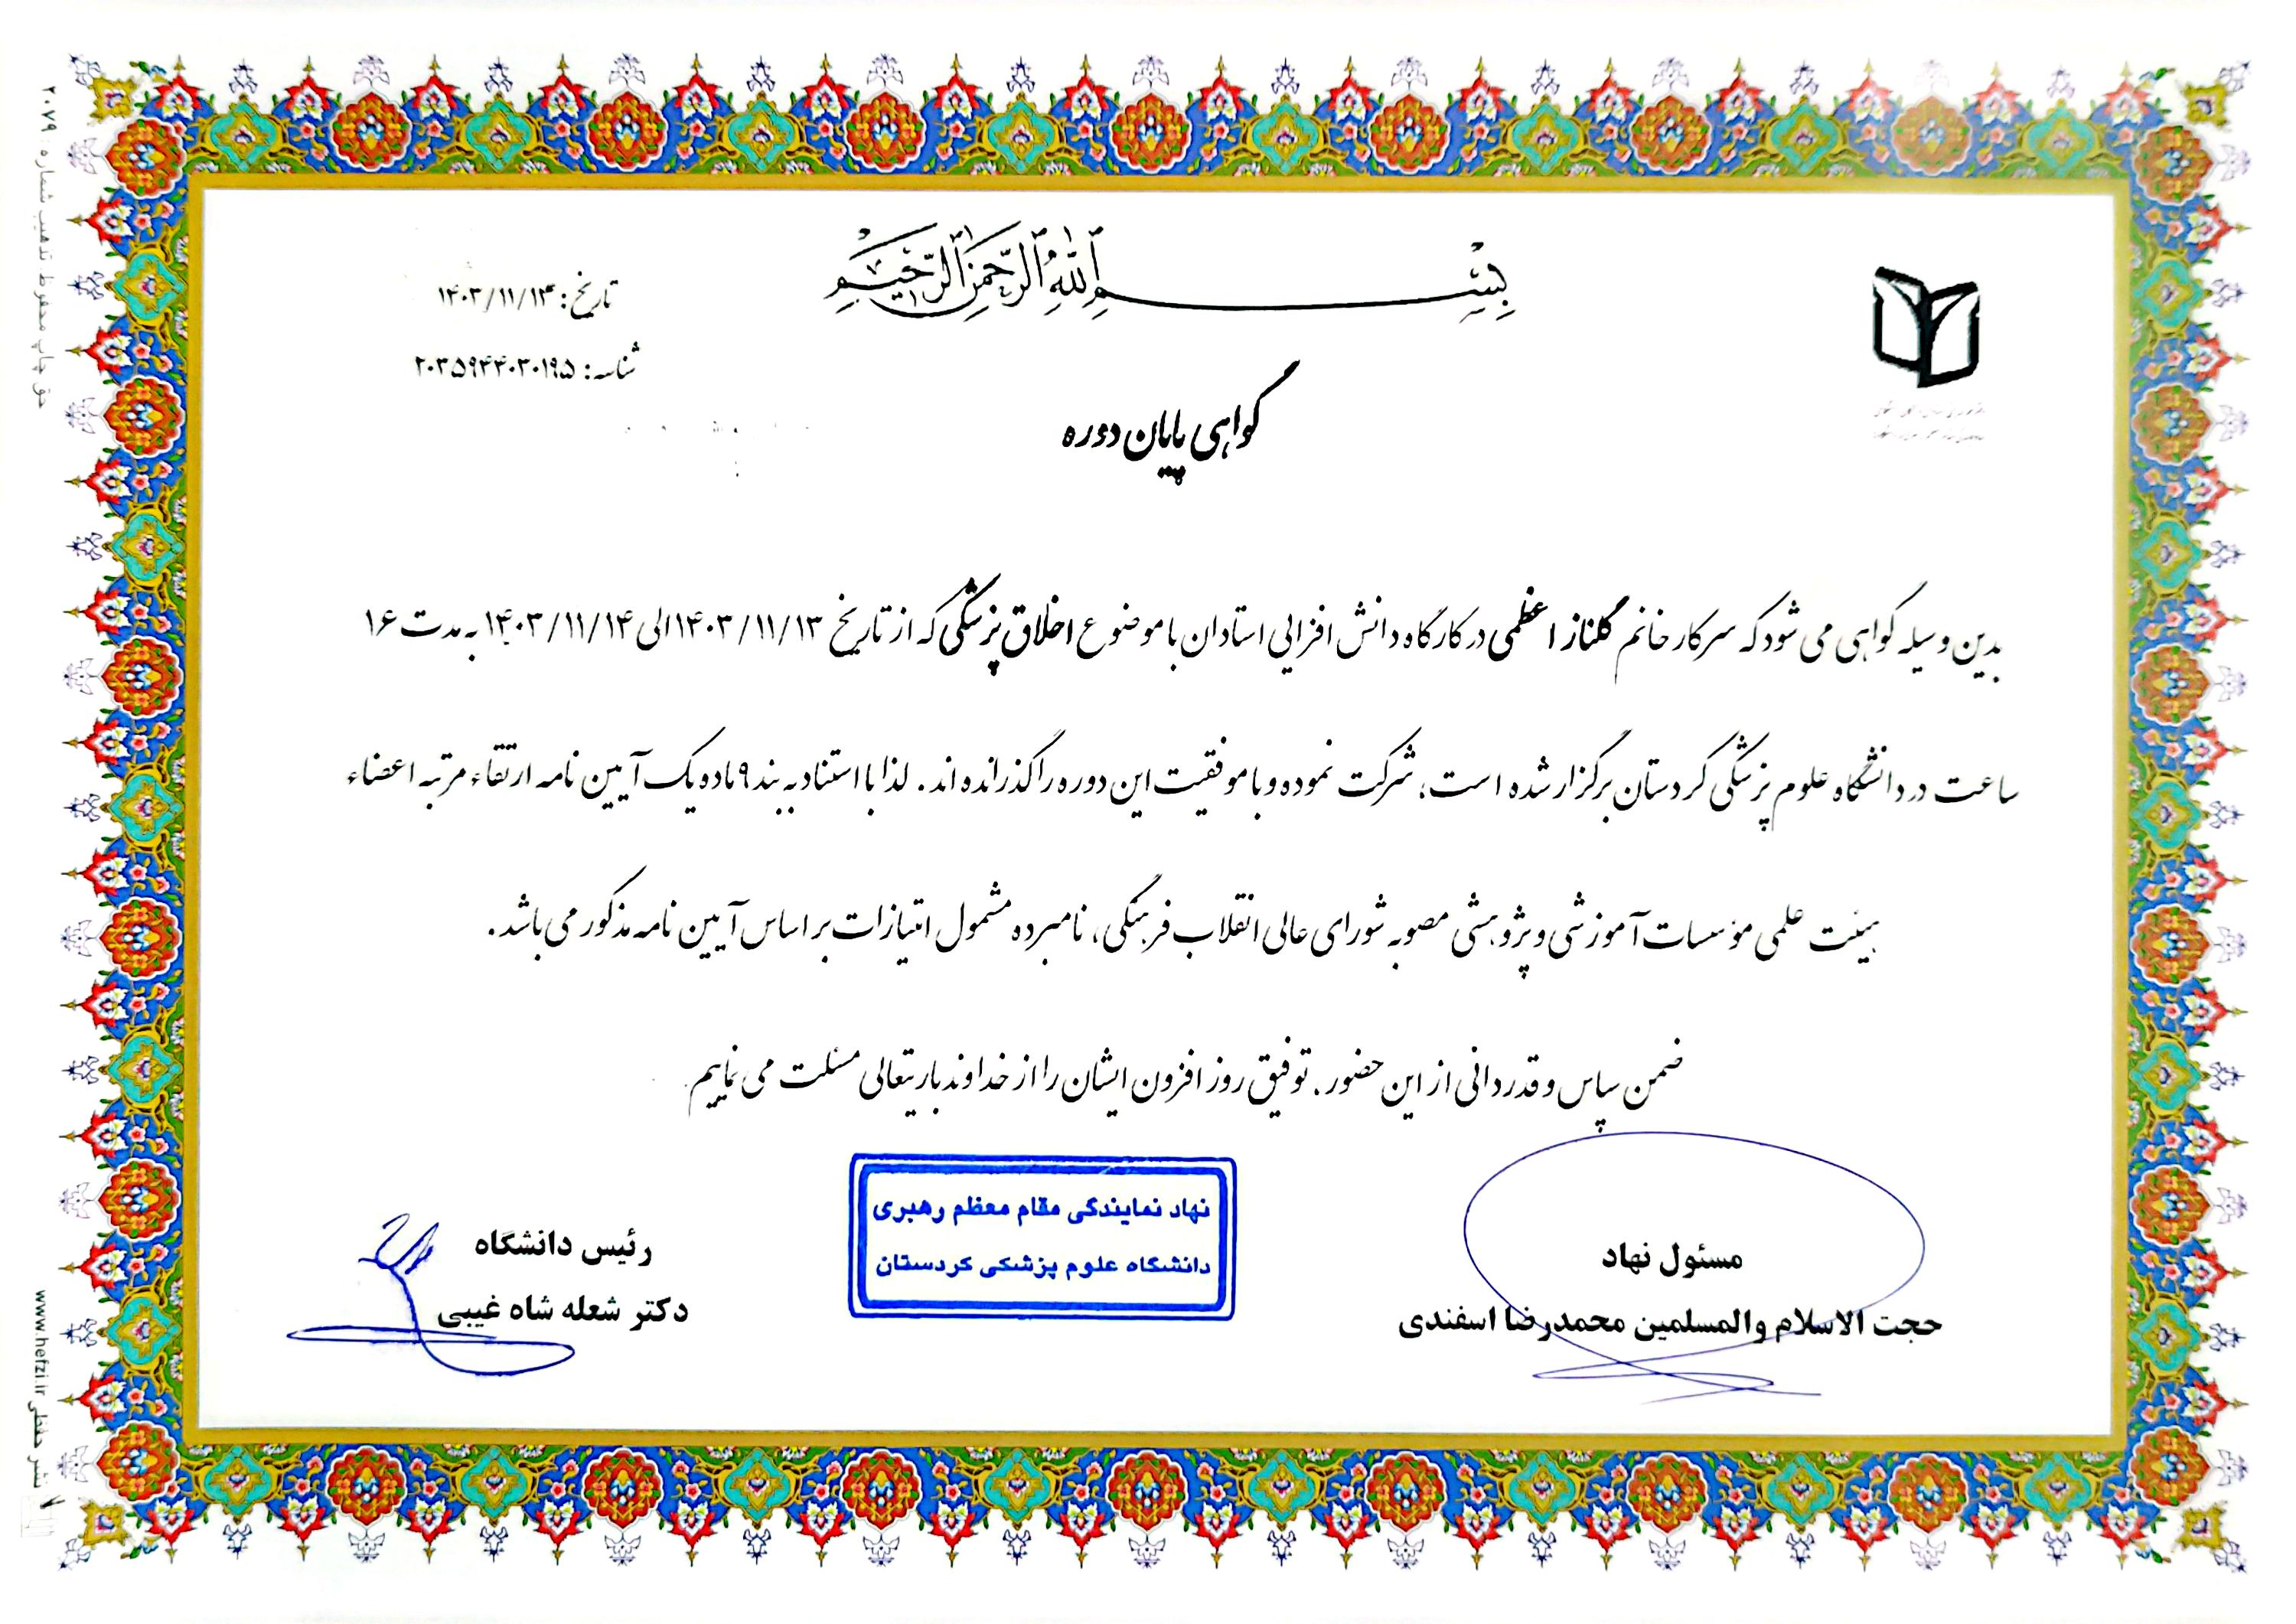 بِسْمِ اللهِ الرَّحْمنِ الرَّحِيمِ
تاریخ: ۱۴۰۳/۱۱/۱۴
شناسه: ۲۰۳۵۹۴۴۰۳۰۱۹۵
گواهی پایان دوره
بدین وسیله گواهی می شود که سرکار خانم گلناز اعظمی در کارگاه دانش افزایی استادان با موضوع اخلاق پزشکی که از تاریخ ۱۴۰۳/۱۱/۱۳ الی ۱۴۰۳/۱۱/۱۴ به مدت ۱۶
ساعت در دانشگاه علوم پزشکی کردستان برگزار شده است، شرکت نموده و با موفقیت این دوره را گذرانده اند. لذا با استناد به بند ۹ ماده یک آیین نامه ارتقاء مرتبه اعضاء
هیئت علمی مؤسسات آموزشی و پژوهشی مصوبه شورای عالی انقلاب فرهنگی، نامبرده مشمول امتیازات بر اساس آیین نامه مذکور می باشد.
ضمن سپاس و قدردانی از این حضور. توفیق روز افزون ایشان را از خداوند باریتعالی مسئلت می نماییم
مسئول نهاد
حجت الاسلام والمسلمین محمدرضا اسفندی
نهاد نمایندگی مقام معظم رهبری
دانشگاه علوم پزشکی کردستان
رئیس دانشگاه
دکتر شعله شاه غیبی
حق چاپ محفوظ تذهیب شماره ۲۰۷۹
نشر حفظی www.hefzi.ir